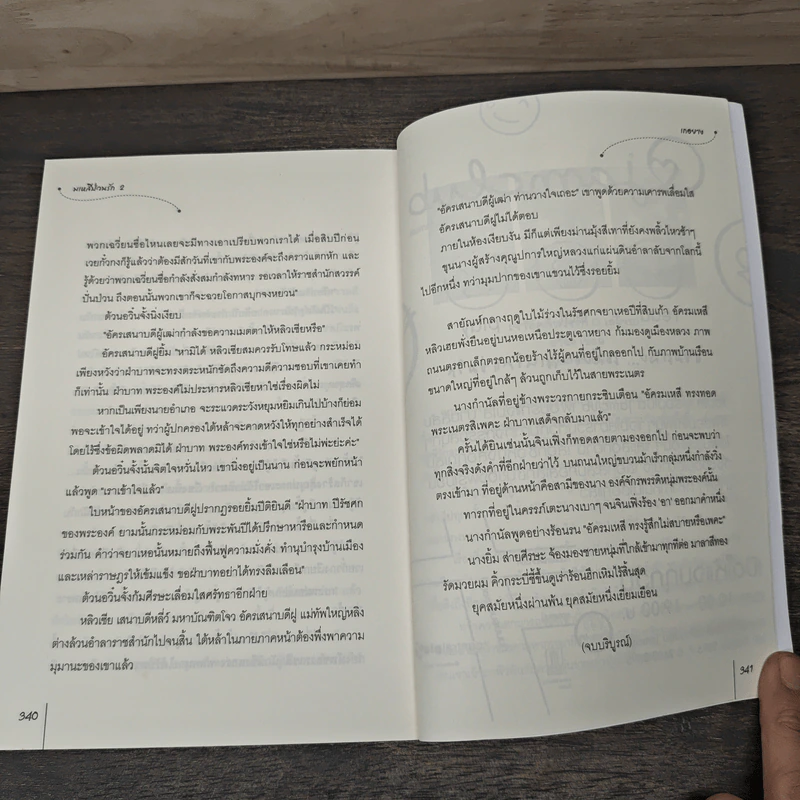 มเหสีป่วนรัก 2
พวกเฉวียนซื่อไหนเลยจะมีทางเอาเปรียบพวกเราได้ เมื่อสิบปีก่อน
เวยกั๋วกงก็รู้แล้วว่าต้องมีสักวันที่เขากับพระองค์จะถึงคราวแตกหัก และ
รู้ด้วยว่าพวกเฉวียนซื่อกำลังสั่งสมกำลังทหาร รอเวลาให้ราชสำนักสวรรค์
ปั่นป่วน ถึงตอนนั้นพวกเขาก็จะฉวยโอกาสบุกจงหยวน"
ตัวนอวิ๋นจั้งนิ่งเงียบ
"อัครเสนาบดีผู้เฒ่ากำลังขอความเมตตาให้หลิวเซียหรือ"
อัครเสนาบดีฝูยิ้ม "หามิได้ หลิวเซียสมควรรับโทษแล้ว กระหม่อม
เพียงหวังว่าฝ่าบาทจะทรงตระหนักชัดถึงความดีความชอบที่เขาเคยทำ
ก็เท่านั้น ฝ่าบาท พระองค์ไม่ประหารหลิวเซียหาใช่เรื่องผิดไม่
หากเป็นเพียงนายอำเภอ จะระแวดระวังหยุมหยิมเกินไปบ้างก็ย่อม
พอจะเข้าใจได้อยู่ ทว่าผู้ปกครองใต้หล้าจะคาดหวังให้ทุกอย่างสำเร็จได้
โดยไร้ซึ่งข้อผิดพลาดมิได้ ฝ่าบาท พระองค์ทรงเข้าใจใช่หรือไม่พ่ะย่ะค่ะ"
ตัวนอวิ๋นจั้งนั้นจิตใจหวั่นไหว เขานิ่งอยู่เป็นนาน ก่อนจะพยักหน้า
แล้วพูด "เราเข้าใจแล้ว"
ใบหน้าของอัครเสนาบดีฝูปรากฏรอยยิ้มปีติยินดี "ฝ่าบาท ปีรัชศก
ของพระองค์ ยามนั้นกระหม่อมกับพระพันปีได้ปรึกษาหารือและกำหนด
ร่วมกัน คำว่าจยาเหอนั้นหมายถึงฟื้นฟูความมั่งคั่ง ทำนุบำรุงบ้านเมือง
และเหล่าราษฎรให้เข้มแข็ง ขอฝ่าบาทอย่าได้ทรงลืมเลือน"
ตัวนอวิ๋นจั้งก้มศีรษะเลื่อมใสศรัทธาอีกฝ่าย
หลิวเซีย เสนาบดีหลี่ว์ มหาบัณฑิตโจว อัครเสนาบดีฝู แม่ทัพใหญ่หลิง
ต่างล้วนอำลาราชสำนักไปจนสิ้น ใต้หล้าในภายภาคหน้าต้องพึ่งพาความ
มุมานะของเขาแล้ว
340
เกอยาง
"อัครเสนาบดีผู้เฒ่า ท่านวางใจเถอะ" เขาพูดด้วยความเคารพเลื่อมใส
อัครเสนาบดีฝูไม่ได้ตอบ
ภายในห้องเงียบงัน มีก็แต่เพียงม่านมุ้งสีเทาที่ยังคงพลิ้วไหวช้าๆ
ขุนนางผู้สร้างคุณูปการใหญ่หลวงแก่แผ่นดินอำลาลับจากโลกนี้
ไปอีกหนึ่ง ทว่ามุมปากของเขาแขวนไว้ซึ่งรอยยิ้ม
สายัณห์กลางฤดูใบไม้ร่วงในรัชศกจยาเหอปีที่สิบเก้า อัครมเหสี
หลิวเฮยพั่งยืนอยู่บนหอเหนือประตูเฉาหยาง ก้มมองดูเมืองหลวง ภาพ
ถนนตรอกเล็กตรอกน้อยร้างไร้ผู้คนที่อยู่ไกลออกไป กับภาพบ้านเรือน
ขนาดใหญ่ที่อยู่ใกล้ๆ ล้วนถูกเก็บไว้ในสายพระเนตร
นางกำนัลที่อยู่ข้างพระวรกายกระซิบเตือน "อัครมเหสี ทรงทอด
พระเนตรสิเพคะ ฝ่าบาทเสด็จกลับมาแล้ว"
ครั้นได้ยินเช่นนั้นจินเฟิ่งก็ทอดสายตามองออกไป ก่อนจะพบว่า
ทุกสิ่งจริงดังคำที่อีกฝ่ายว่าไว้ บนถนนใหญ่ขบวนม้าเร็วกลุ่มหนึ่งกำลังวิ่ง
ตรงเข้ามา ที่อยู่ด้านหน้าคือสามีของนาง องค์จักรพรรดิหนุ่มพระองค์นั้น
ทารกที่อยู่ในครรภ์เตะนางเบาๆ จนจินเฟิ่งร้อง 'อา' ออกมาคำหนึ่ง
นางกำนัลพูดอย่างร้อนรน "อัครมเหสี ทรงรู้สึกไม่สบายหรือเพคะ"
นางยิ้ม ส่ายศีรษะ จ้องมองชายหนุ่มที่ใกล้เข้ามาทุกทีต่อ มาลาสีทอง
รัดมวยผม คิ้วกระบี่ชี้ขึ้นดูเร่าร้อนฮึกเหิมไร้สิ้นสุด
ยุคสมัยหนึ่งผ่านพ้น ยุคสมัยหนึ่งเยี่ยมเยือน
(จบบริบูรณ์)
341